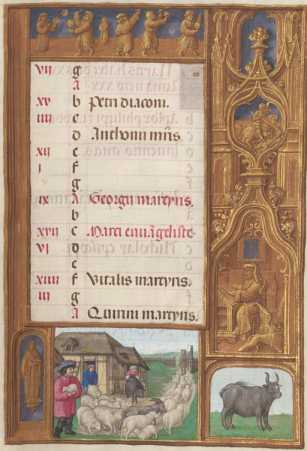 vii g
A
xv b Petri diaconi.
iiii c
d Anthonii mris.
xii e
i f
g
ix A Georgii martyris.
b
xvii c Marci euuãgeliste
vi d
e
xiiii f Vitalis martyris.
iii g
A Quirini martyris.